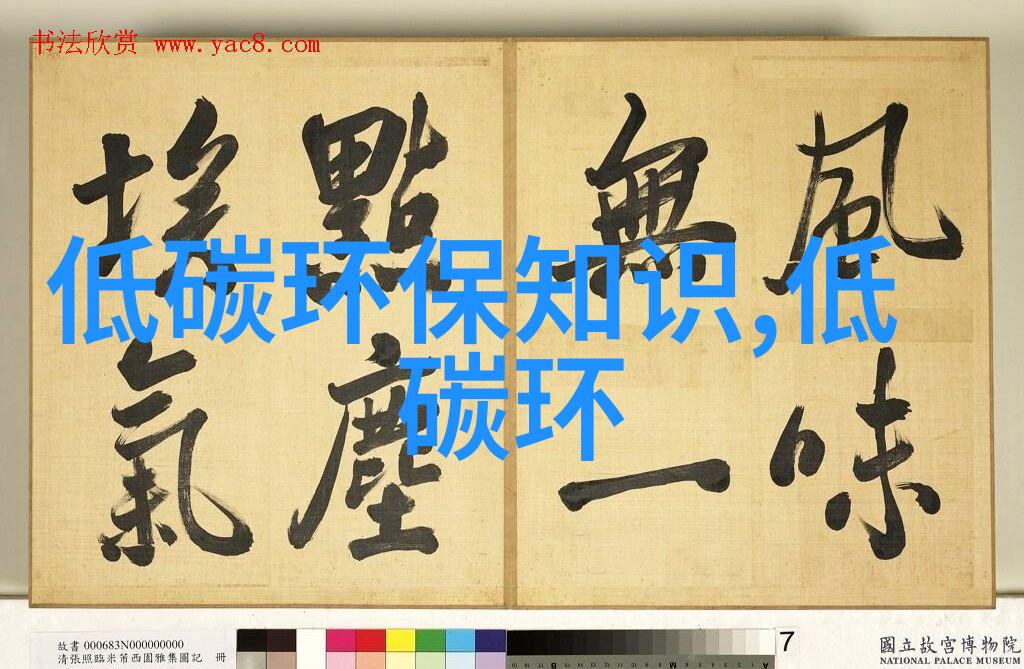 书法欣赏 www.yac8.com
風味
無一
點塵
埃氣
低碳环保知识,低
碳环
故書 000683N000000000
清張照臨米芾西園雅集圖記 冊
7
國立故宮博物院
NATIONAL PALACE MUSEUM